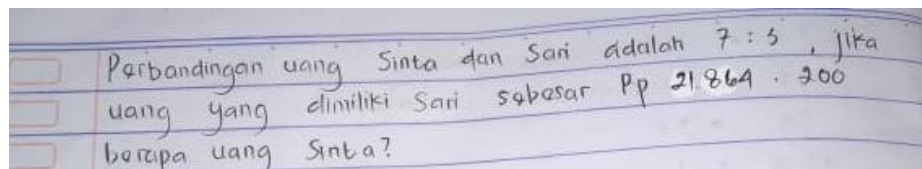 Perbandingan uang Sinta dan Sari adalah 7 : 3 , jika
uang yang dimiliki Sari sebesar Rp 21.864 . 200
berapa uang Sinta?